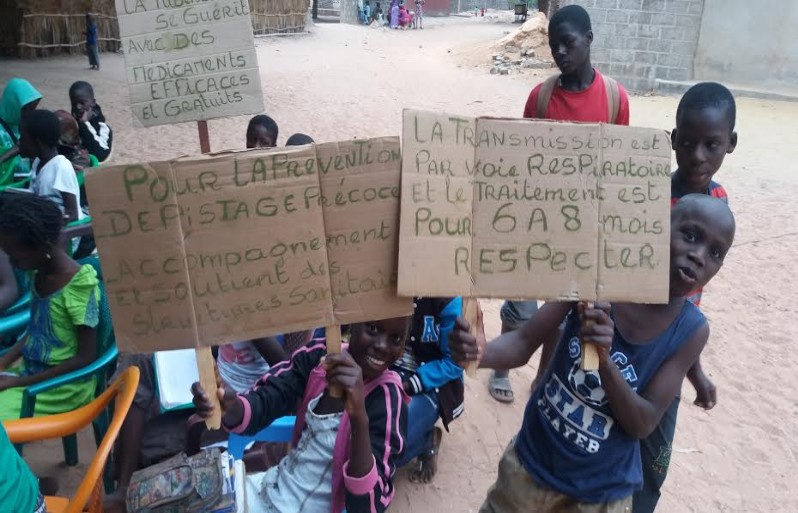 LA TUBE
SE GUÉRIT
AVEC DES
MÉDICAMENTS
EFFICACES
ET GRATUITS
POUR LA PREVENTION
DEPISTAGE PRÉCOCE
ACCOMPAGNEMENT
ET SOUTIENT des
Sanitai
LA TRANSMISSION EST
PAR VOIE RESPIRATOIRE
ET LE TRAITEMENT EST
POUR 6 A 8 MOIS
RESPECTER
STAR
PLAYER